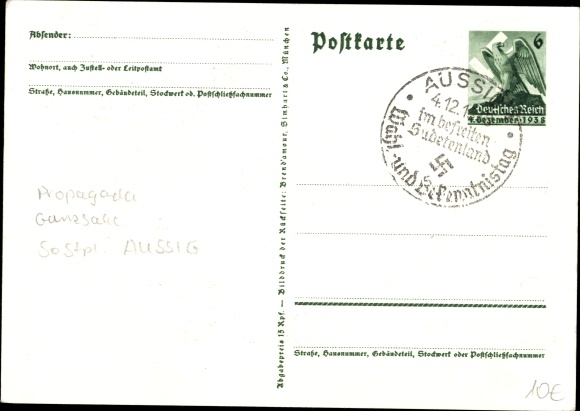 Absender:
Wohnort, auch Zustell- oder Leitpostamt
Straße, Hausnummer, Gebäudeteil, Stockwerk od. Postschließfachnummer
Propagada
Ganzsache
Sostpl. AUSSIG
Abgabepreis 15 Rpf. — Bilddruck der Rückseite: Brend'amour, Simhart & Co., München
Postkarte
6
Deutsches Reich
4. Dezember 1938
AUSSIG
4.12.
im befreiten
Sudetenland
Wahl- und Bekenntnistag
Straße, Hausnummer, Gebäudeteil, Stockwerk oder Postschließfachnummer
10€